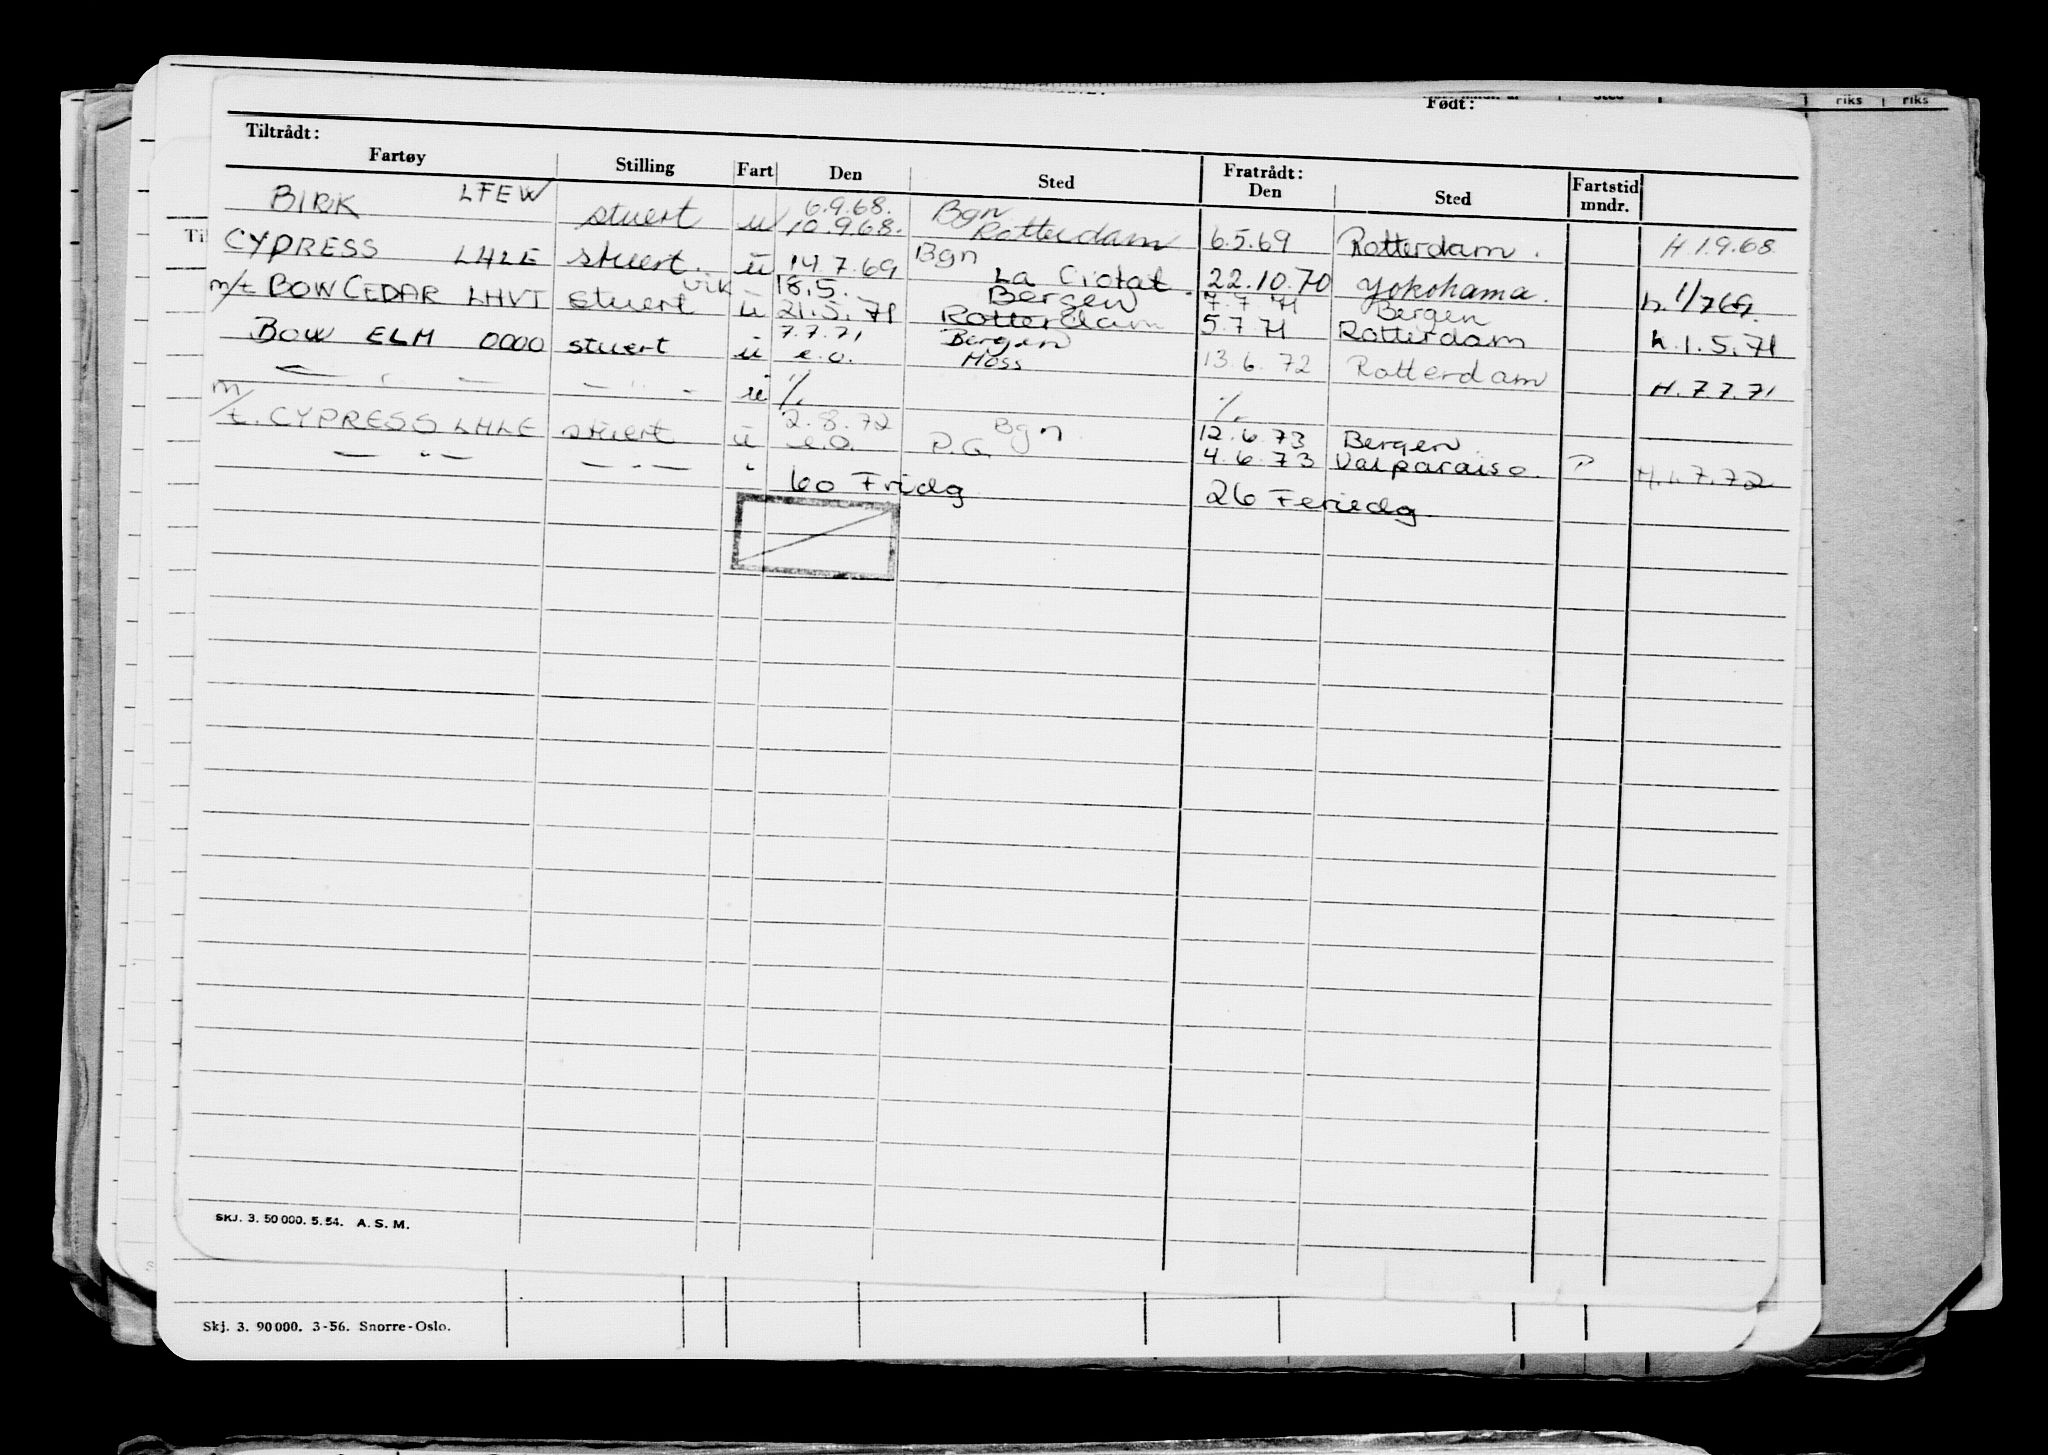 Født:
Sted
Riks Riks
Tiltrådt:
Fartøy Stilling Fart Den Sted Fratrådt: Den Sted Fartstid mndr.
BIRK LFEW stuert u 6.9.68. Bgn
10.9.68. Rotterdam 6.5.69 Rotterdam. H 1.9.68
CYPRESS LHLE stuert. u 14.7.69 Bgn La Ciotat 22.10.70 Yokohama. h. 1/7 69.
vik 18.5. Bergen 7.7.71 Bergen
m/t BOW CEDAR LHVT stuert u 21.5.71 Rotterdam 5.7.71 Rotterdam h.1.5.71
7.7.71 Bergen
BOW ELM 0000 stuert u e.o. Moss 13.6.72 Rotterdam H.7.7.71
— " — — " — u %. %.
2.8.72 Bgn 12.6.73 Bergen
m/t. CYPRESS LHLE stuert u e.o. P.G. 4.6.73 Valparaiso. P H.1.7.72
— " — — " — "
60 Fridg 26 Feriedg
SKJ. 3. 50 000. 5. 54. A. S. M.
Skj. 3. 90 000. 3-56. Snorre-Oslo.